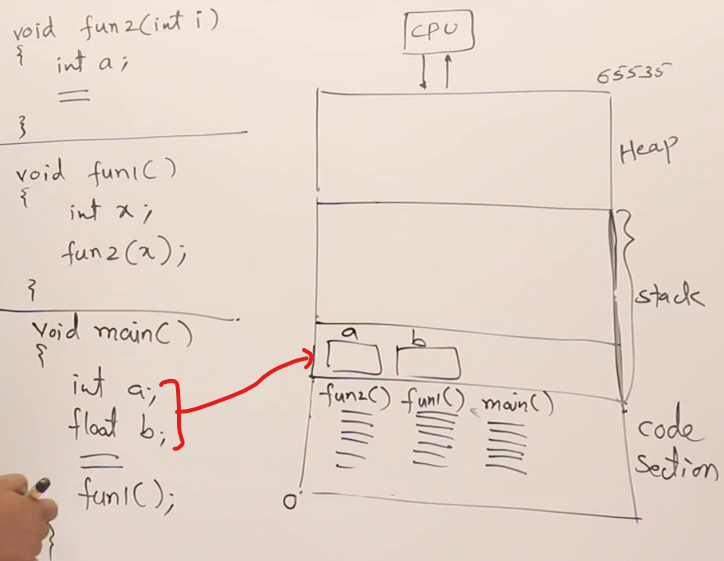 void fun2(int i)
{
int a;
}
void fun1()
{
int x;
fun2(x);
}
void main()
{
int a;
float b;
fun1();
}
CPU
65535
Heap
stack
a b
fun2() fun1() main()
code
section
0